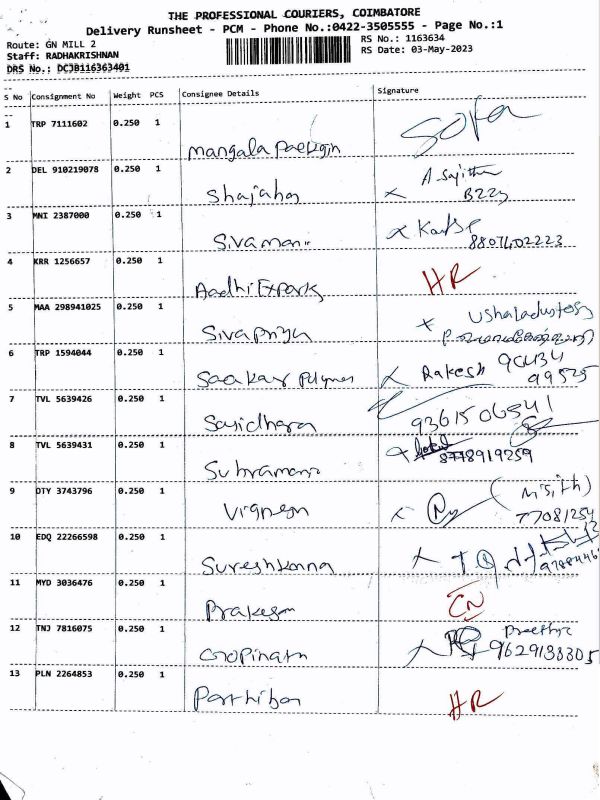 THE PROFESSIONAL COURIERS, COIMBATORE
Delivery Runsheet - PCM - Phone No.:0422-3505555 - Page No.:1
Route: GN MILL 2 RS No.: 1163634
Staff: RADHAKRISHNAN RS Date: 03-May-2023
DRS No.: DCJB116363401
S No Consignment No Weight PCS Consignee Details Signature
1 TRP 7111602 0.250 1 Mangala
2 DEL 910219078 0.250 1 Shajahan A Sajitha
3 MNI 2387000 0.250 1 Sivamani
8807402223
4 KRR 1256657 0.250 1 Aadhi Exports HR
5 MAA 298941025 0.250 1 Sivapriya
6 TRP 1594044 0.250 1 Saakar Polymer x Rakesh 90434
99525
7 TVL 5639426 0.250 1 Sasidharan 9361506541
8 TVL 5639431 0.250 1 Subramani
8778919259
9 OTY 3743796 0.250 1 Vignesh
77081254
10 EDQ 22266598 0.250 1 Sureshkanna
11 MYD 3036476 0.250 1 Prakesam
12 TNJ 7816075 0.250 1 Gopinath
13 PLN 2264853 0.250 1 Parthiban HR